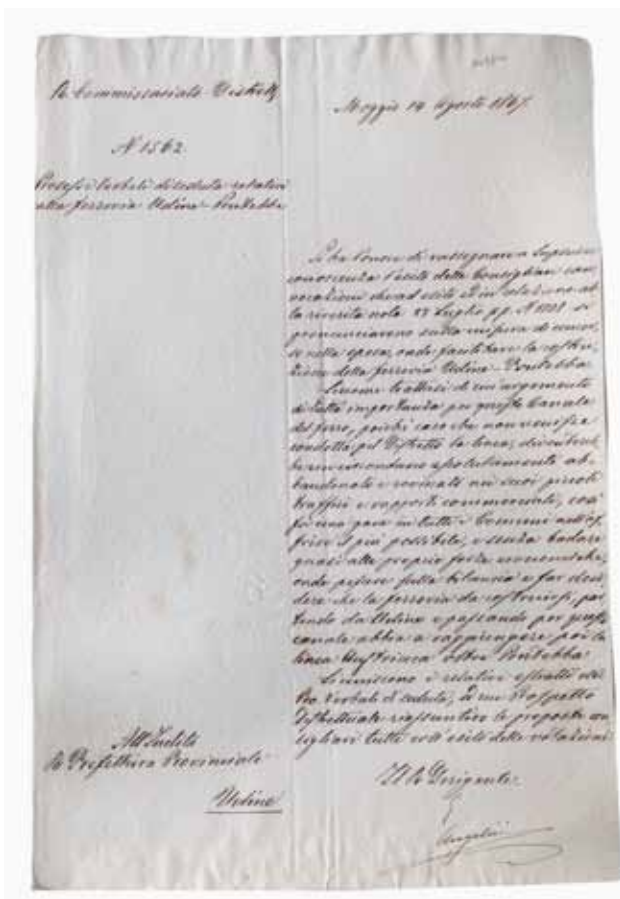 R. Commissariato Distrett.
N 1562
Processi Verbali di seduta relativi
alla ferrovia Udine-Pontebba
Moggio 14 Agosto 1867
Si ha l'onore di rassegnare a Superiore
conoscenza l'esito delle Consigliari con
vocazioni che ad esito ed in relazione al
la riverita nota 27 Luglio pp. N si
pronunciarono sulla misura di concor
so nella spesa, onde facilitare la costru
zione della ferrovia Udine-Pontebba
trattasi di un argomento
di tutta importanza per questo Canale
del ferro, poichè caso che non venisse
condotta pel Distretto la linea,
assolutamente ab
bandonato e rovinato nei suoi piccoli
traffici e rapporti commerciali, così
fu una gara in tutti i Comuni nell'of
frire il più possibile, e senza badare
quasi alle proprie forze economiche,
onde pesare sulla bilancia e far deci
dere che la ferrovia da costruirsi, par
tendo da Udine e passando per questo
canale abbia a raggiungere poi la
linea Austriaca oltre Pontebba
Si uniscono i relativi estratti dei
Pro. Verbali di seduta, ed un Prospetto
distrettuale riassuntivo le proposte con
sigliari tutte coll'esito delle votazioni
Il R. Dirigente
Angelini
All'Inclita
R. Prefettura Provinciale
Udine